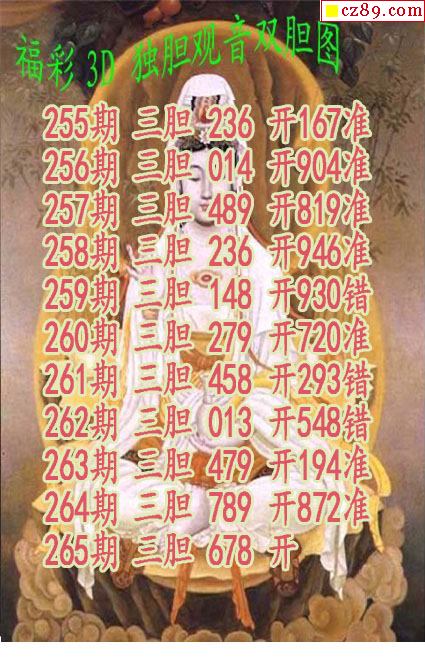 cz89.com
福彩 3D 独胆观音双胆图
255期 三胆 236 开167准
256期 三胆 014 开904准
257期 三胆 489 开819准
258期 三胆 236 开946准
259期 三胆 148 开930错
260期 三胆 279 开720准
261期 三胆 458 开293错
262期 三胆 013 开548错
263期 三胆 479 开194准
264期 三胆 789 开872准
265期 三胆 678 开